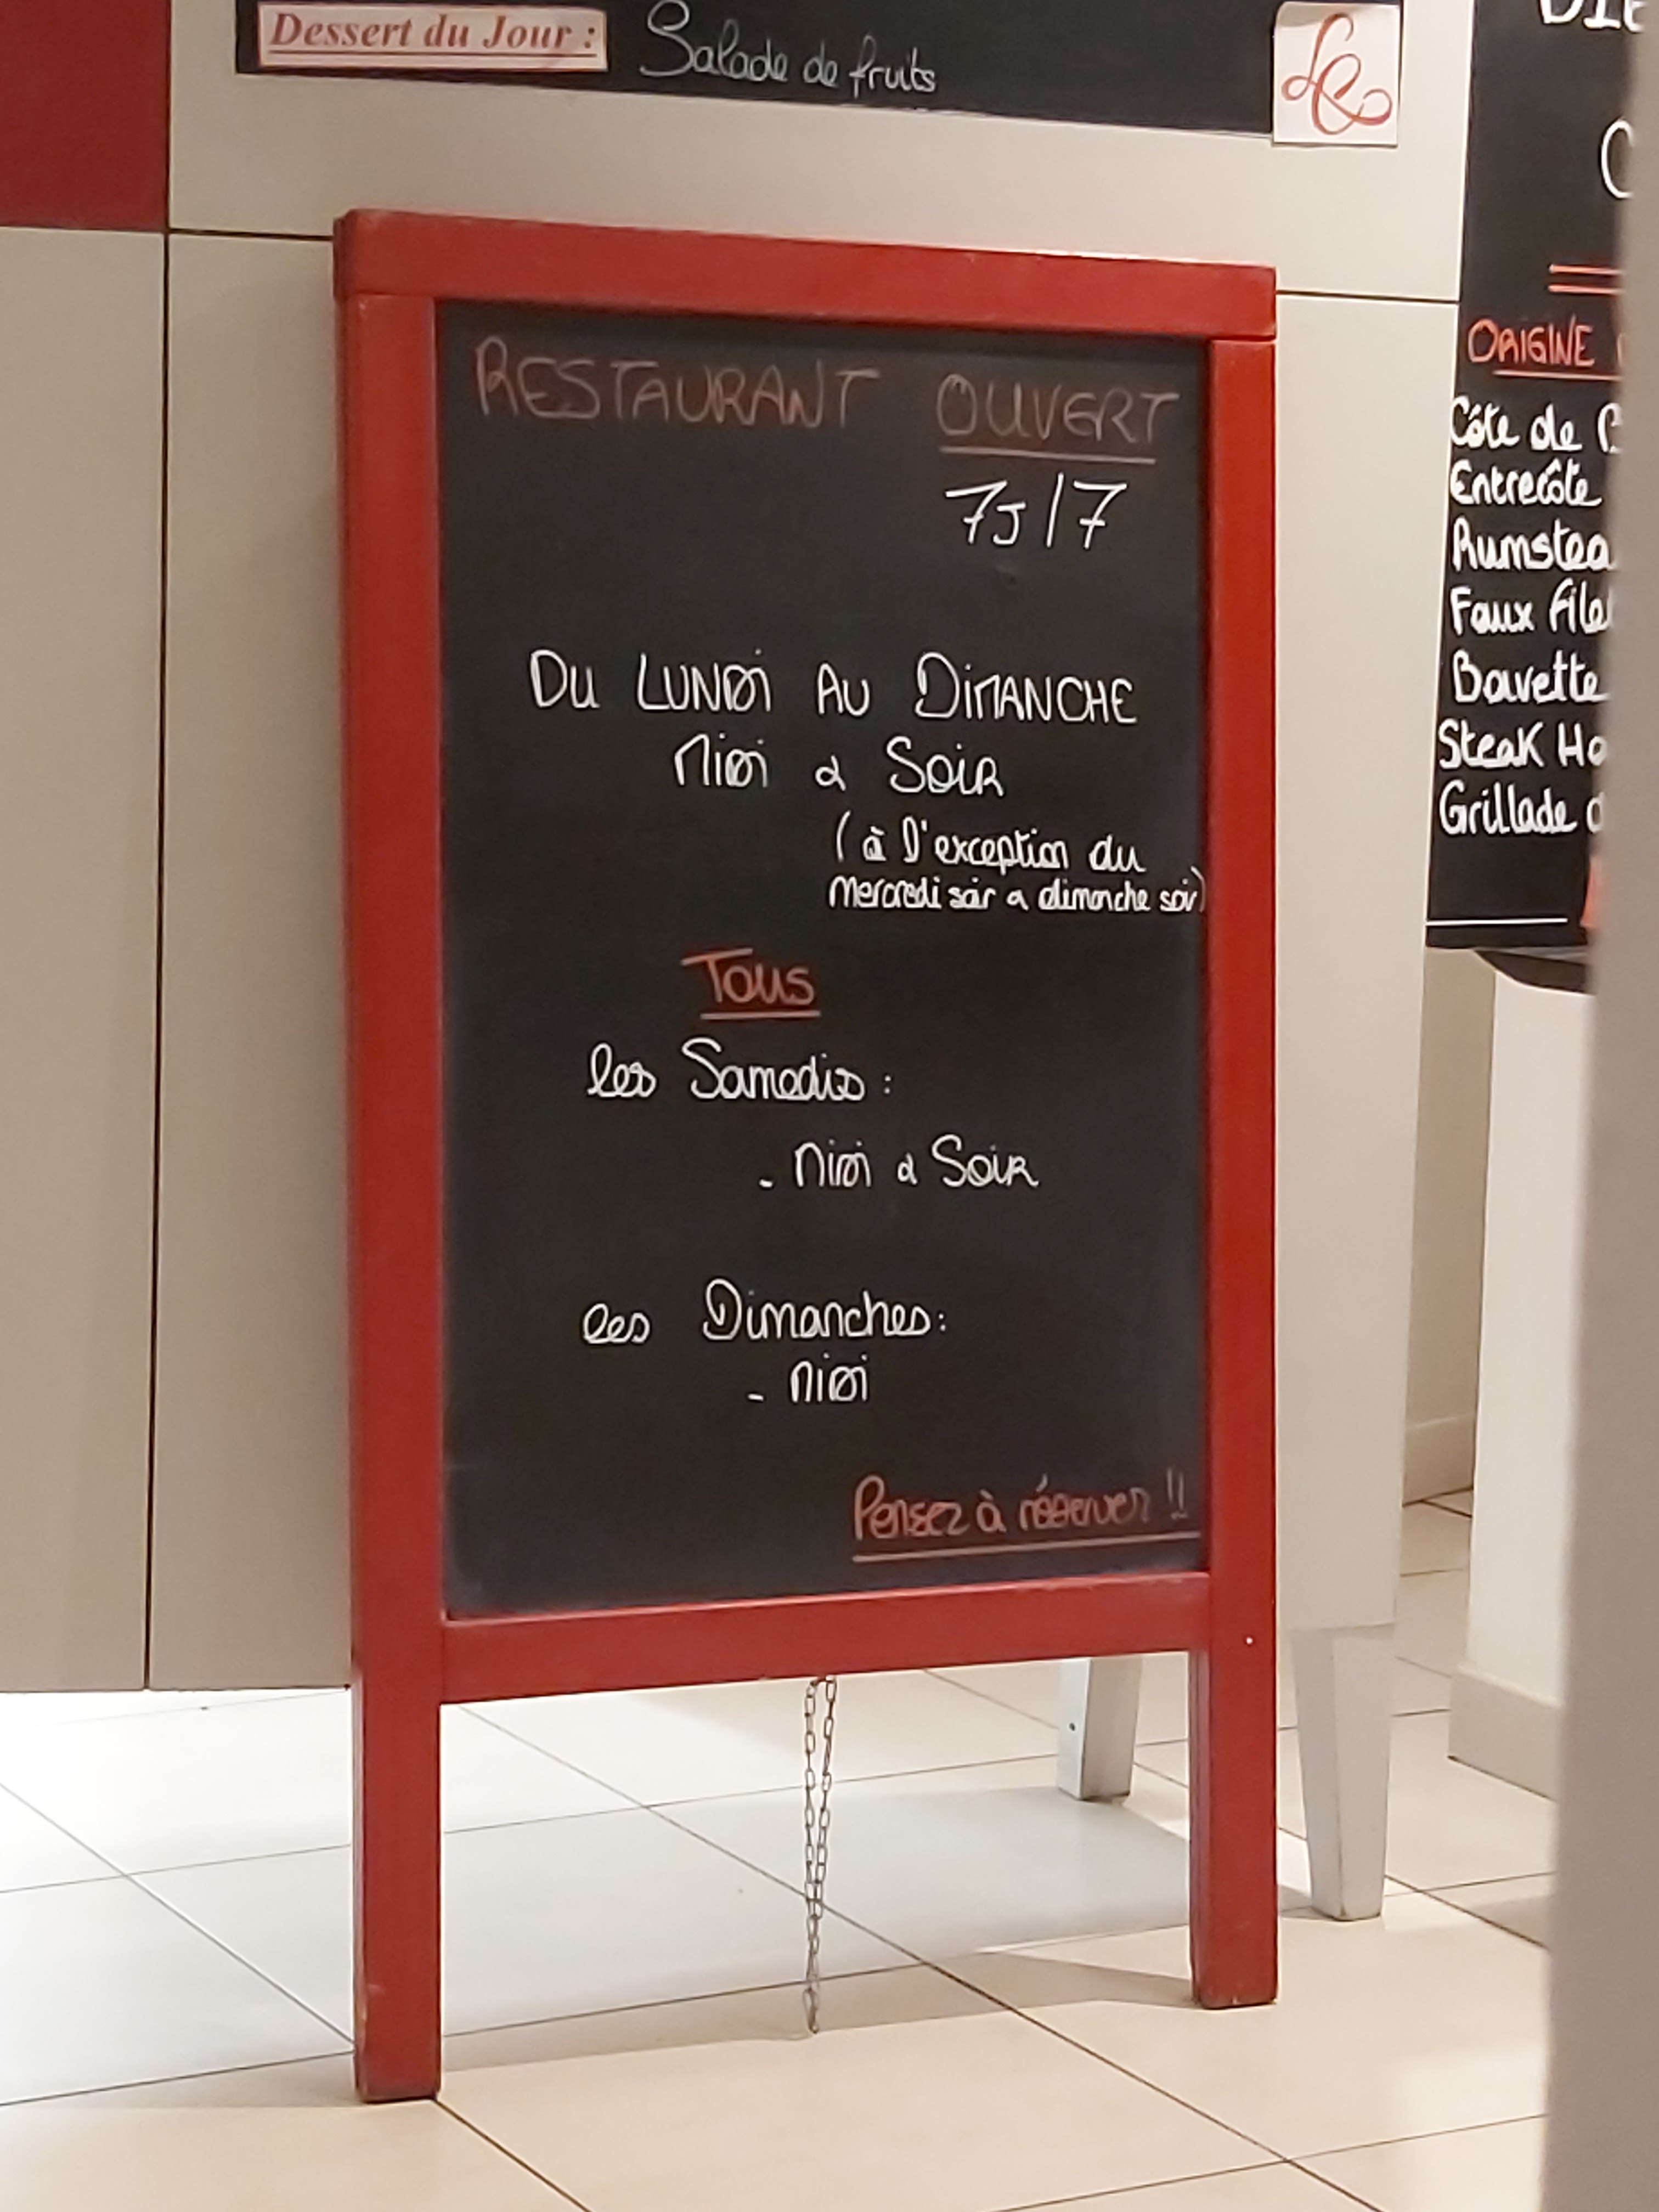 Dessert du Jour :
Salade de fruits
RESTAURANT OUVERT
7J/7
DU LUNDI AU DIMANCHE
MIDI & SOIR
(à l'exception du
mercredi soir & dimanche soir)
TOUS
les Samedis :
- MIDI & SOIR
les Dimanches :
- MIDI
Pensez à réserver !!
ORIGINE
Côte de
Entrecôte
Faux
Bavette
Steak
Grillade